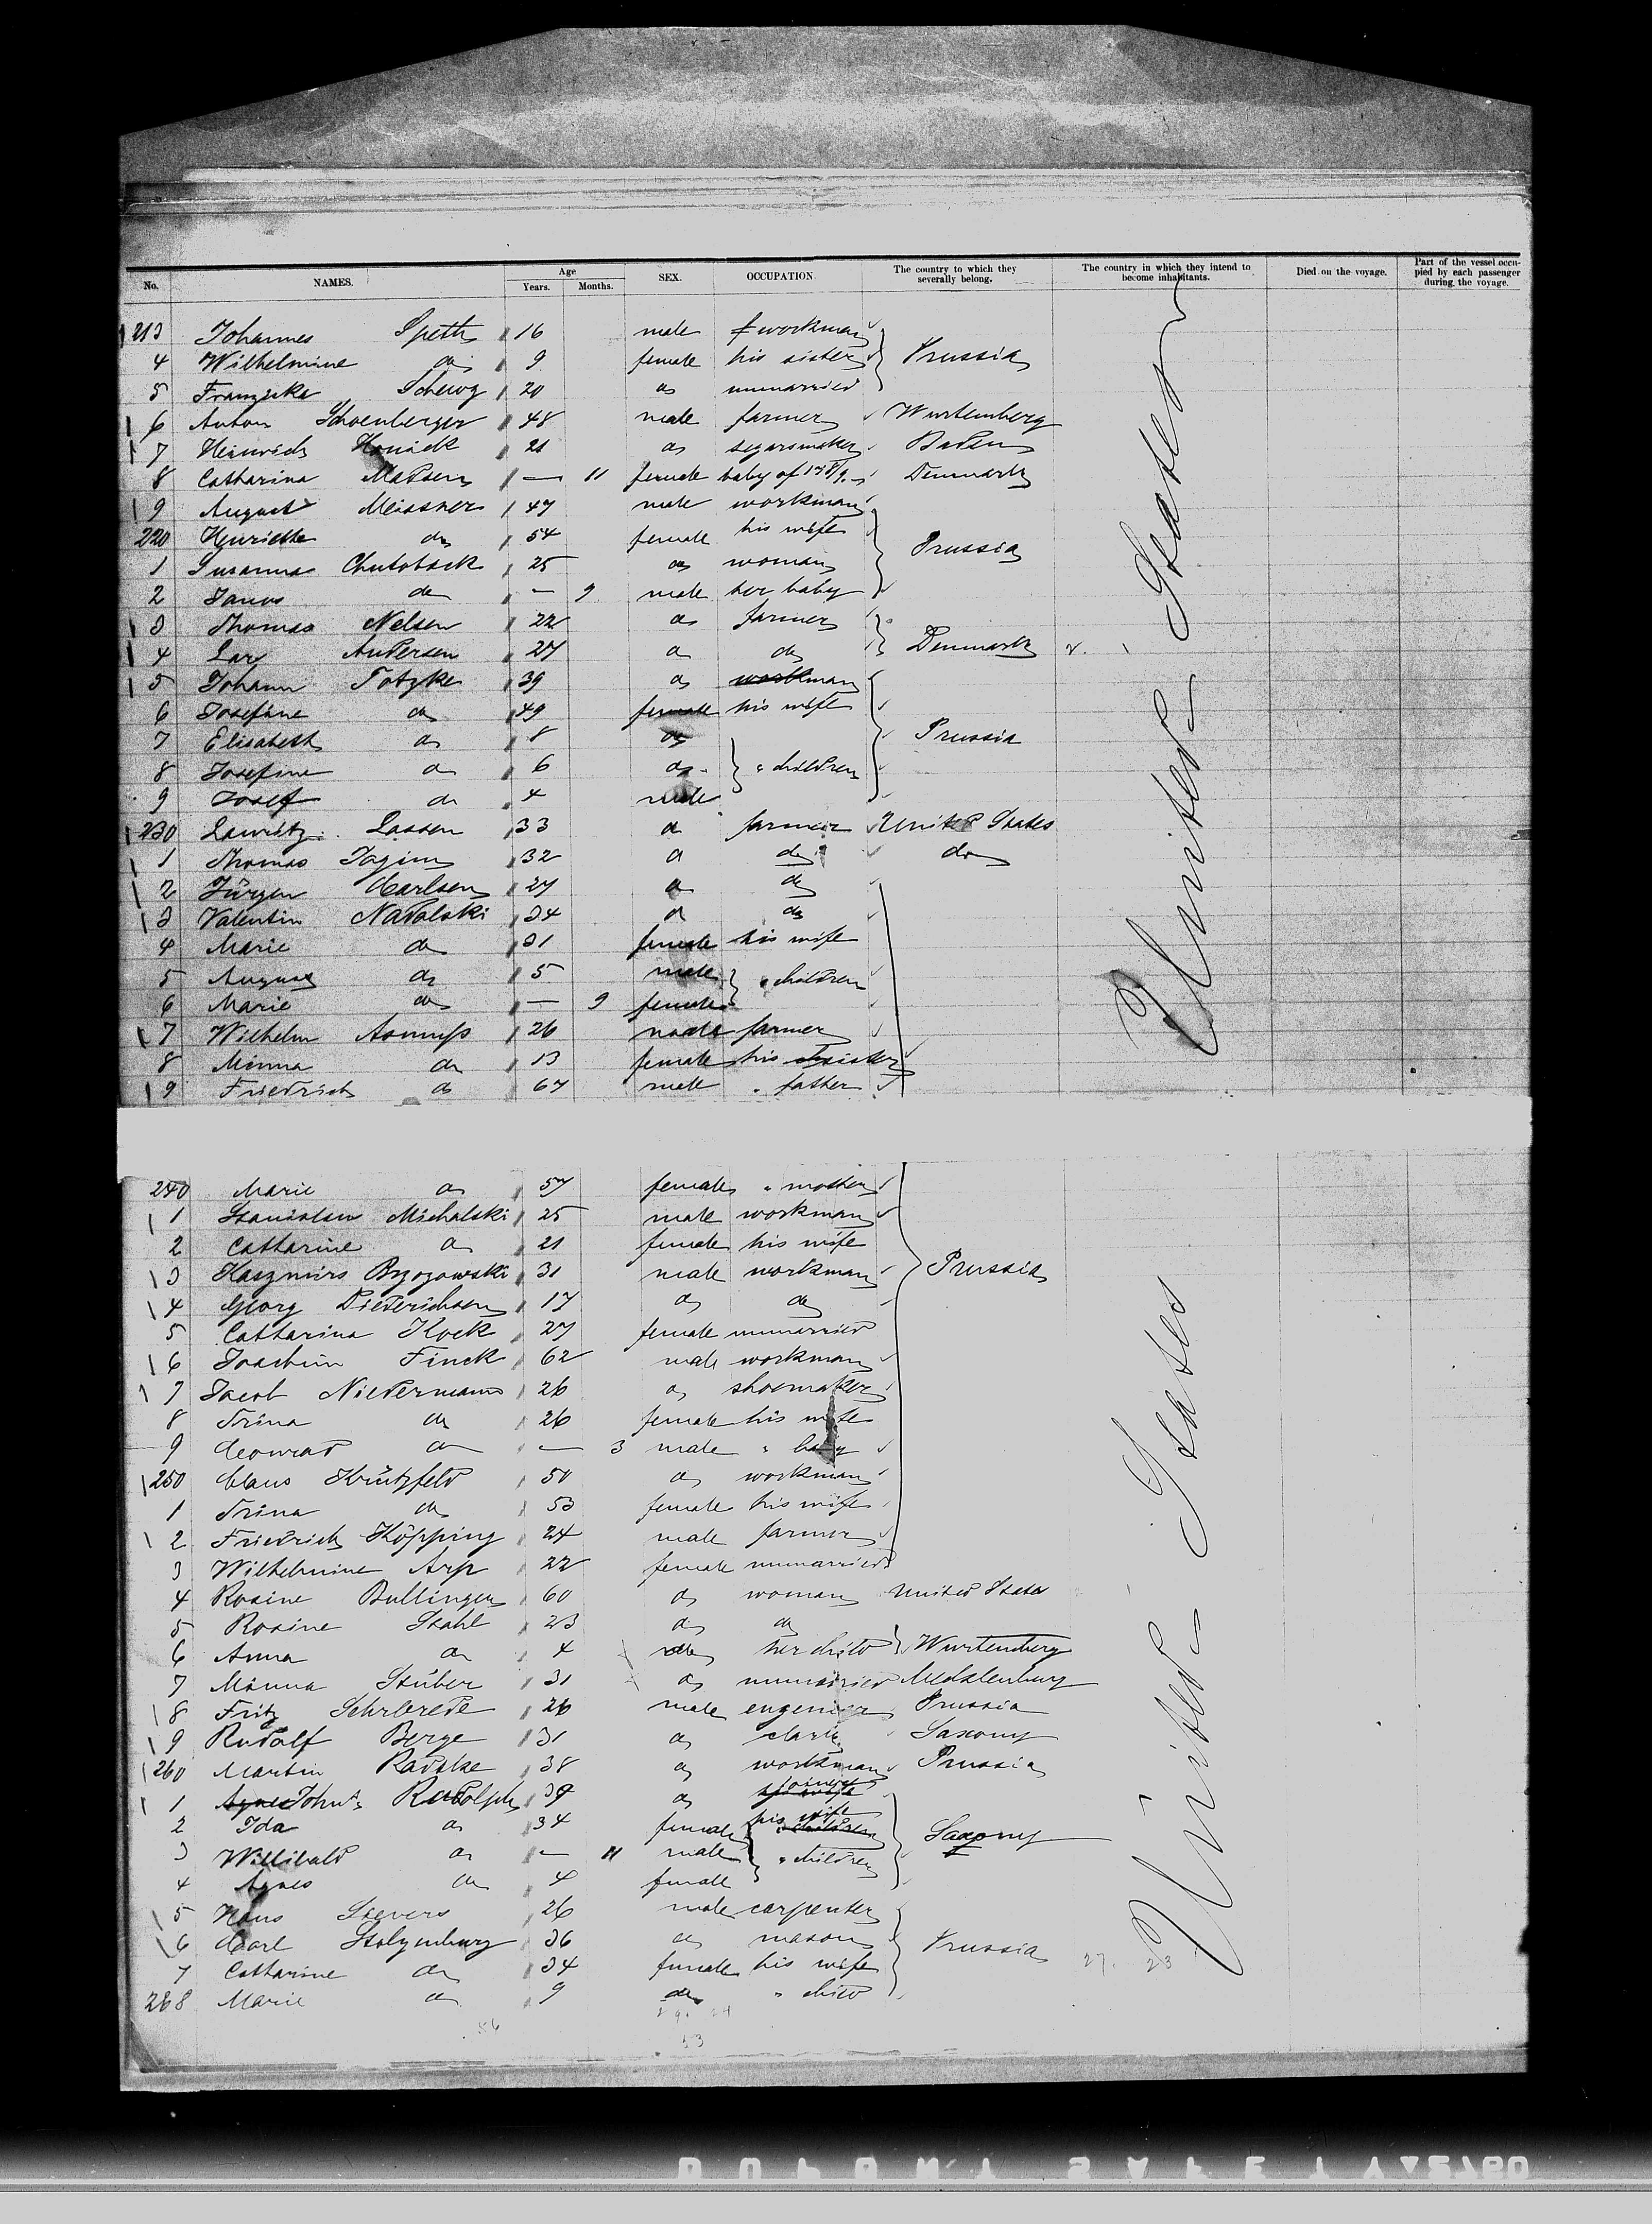 No. NAMES. Age Years. Months. SEX. OCCUPATION. The country to which they severally belong. The country in which they intend to become inhabitants. Died on the voyage. Part of the vessel occupied by each passenger during the voyage.
213 Johannes Speth 16 male workman
4 Wilhelmine do 9 female his sister Prussia
5 Franziska 20 do unmarried
6 Anton Schoenberger 48 male farmer Wurtemberg
7 Heinrich 21 do segarsmaker Baden
8 Catharina Madsen — 11 female baby of Denmark
9 August Meissner 47 male workman
220 Henriette do 54 female his wife Prussia
1 Susanna 25 do woman
2 do — 9 male her baby
3 Thomas Nelsen 22 do farmer
4 Lars Andersen 27 do do Denmark
5 Johann Totzke 39 do workman
6 Josefine do 49 female his wife
7 Elisabeth do 8 do Prussia
8 Josefine do 6 do " children
9 Josef do 4 male
230 Lauritz Lassen 33 do farmer United States
1 Thomas 32 do do do
2 Jürgen Carlsen 27 do do
3 Valentin Nadolski 34 do do
4 Marie do 31 female his wife
5 August do 5 male " children
6 Marie do — 9 female
7 Wilhelm Asmuss 26 male farmer
8 Minna do 13 female his sister
9 Friedrich do 67 male " father
United States
240 Marie do 57 female " mother
1 Stanislaw Michalski 25 male workman
2 Catharine do 21 female his wife
3 Kaszmirs Brzozowski 31 male workman Prussia
4 Georg Diederichsen 17 do do
5 Catharina Kock 27 female unmarried
6 Joachim Finck 62 male workman
7 Jacob Niedermann 26 do shoemaker
8 Trina do 26 female his wife
9 Conrad do — 3 male " baby
250 Claus Krützfeld 50 do workman
1 Trina do 53 female his wife
2 Friedrich Köpping 24 male farmer
3 Wilhelmine Arp 22 female unmarried
4 Rosine Bullinger 60 do woman United States
5 Rosine Stahl 23 do do
6 Anna do 4 do her child Wurtemberg
7 Minna Stüber 31 do unmarried Mecklenburg
8 Fritz 26 male engenier Prussia
9 Rudolf Berge 31 do clark Saxony
260 Martin Radtke 38 do workman Prussia
1 Agnes Johns Rudolph 34 do joiner
2 Ida do 34 female his wife Saxony
3 Willibald do — 11 male " children
4 Agnes do 4 female
5 Hans Sievers 26 male carpenter
6 Carl Stolzenburg 36 do mason Prussia 27. 23
7 Catharine do 34 female his wife
268 Marie do 9 do " child
United States
53